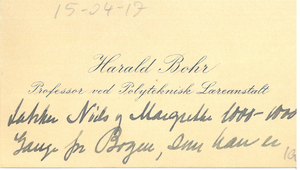 15-04-17
Harald Bohr
Professor ved Polyteknisk Læreanstalt
takker Niels og Margrethe 1000-1000
Gange for Bogen, som han er